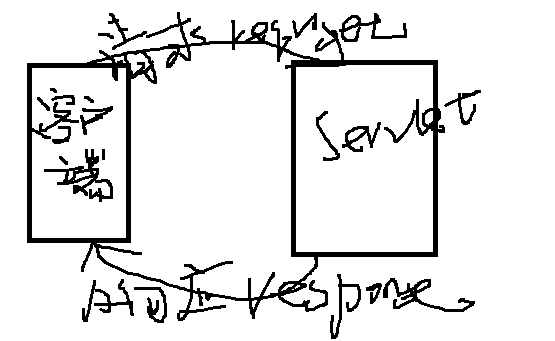 请求 request
客户端
Servlet
响应 response